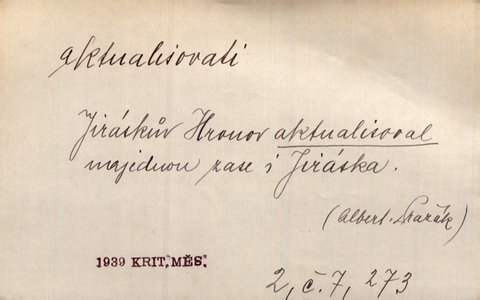 aktualisovati
Jiráskův Hronov aktualisoval
najednou zase i Jiráska.
(Albert Pražák)
1939 KRIT. MĚS.
2, č. 7, 273